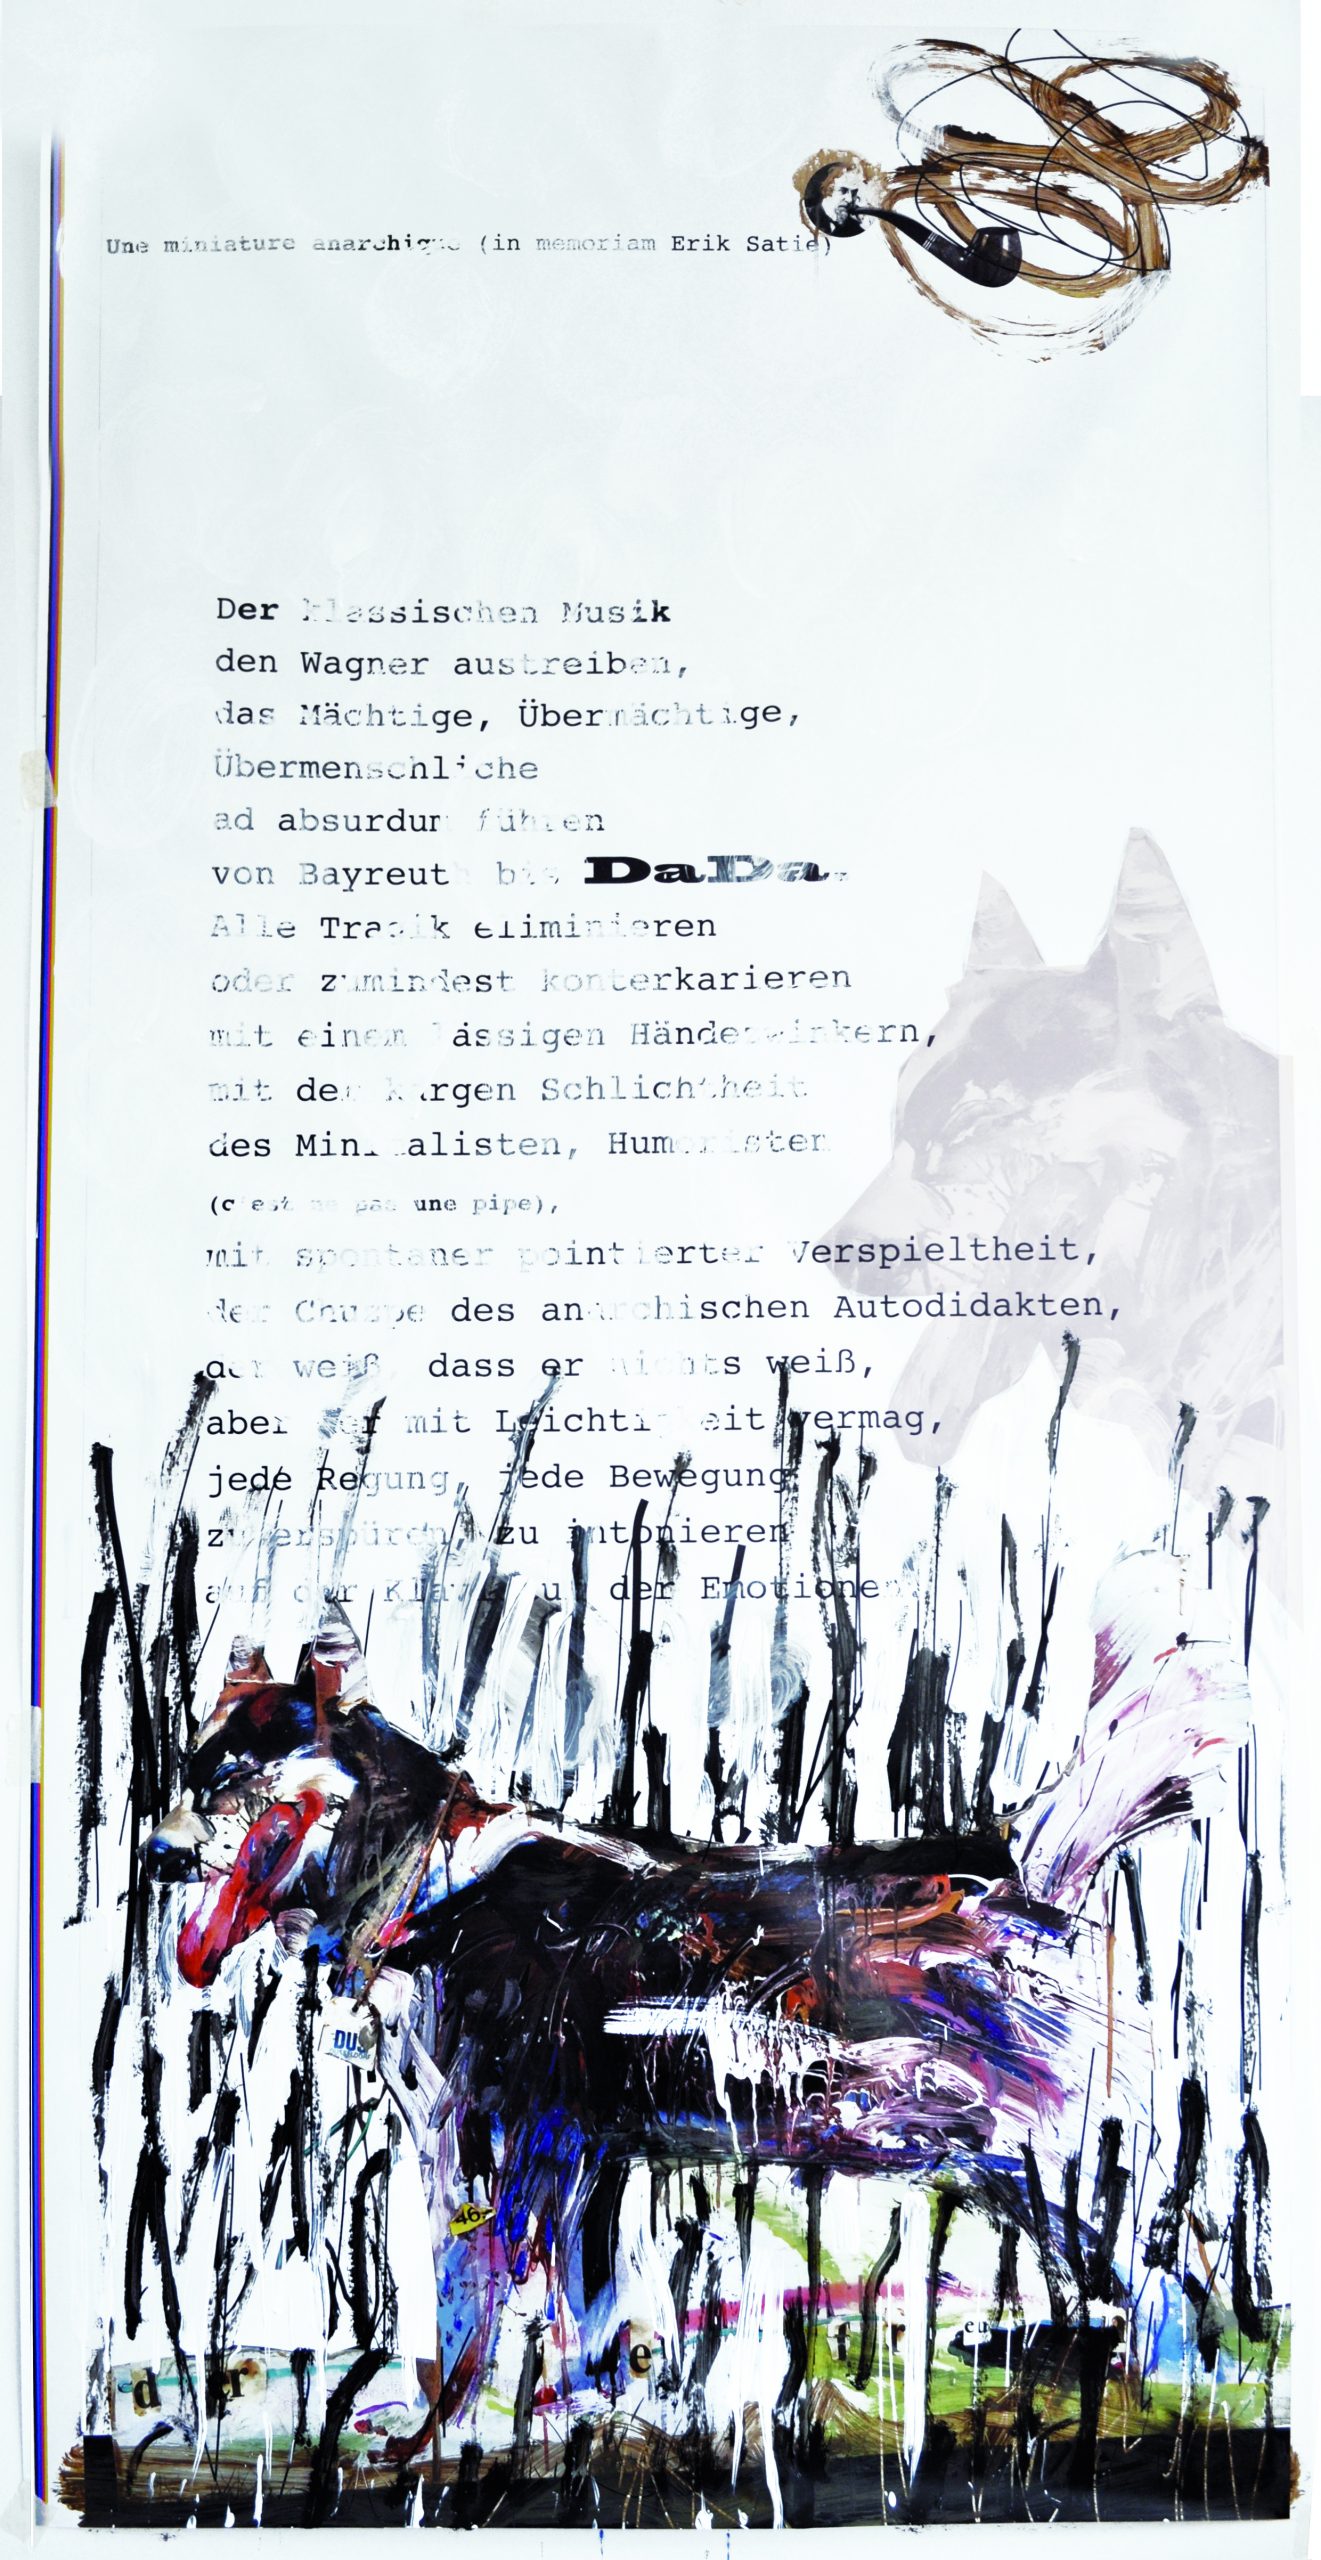 Une miniature anarchique (in memoriam Erik Satie)
Der klassischen Musik
den Wagner austreiben,
das Mächtige, Übermächtige,
Übermenschliche
ad absurdum führen
von Bayreuth bis DaDa.
Alle Tragik eliminieren
oder zumindest konterkarieren
mit einem lässigen Händeswinkern,
mit der kargen Schlichtheit
des Minimalisten, Humoristen
(c'est ne pas une pipe),
mit spontaner pointierter Verspieltheit,
der Chuzpe des anarchischen Autodidakten,
der weiß, dass er nichts weiß,
aber der mit Leichtigkeit vermag,
jede Regung, jede Bewegung
zu erspüren, zu intonieren
auf der Klaviatur der Emotionen
DU
46
d er e f r eu